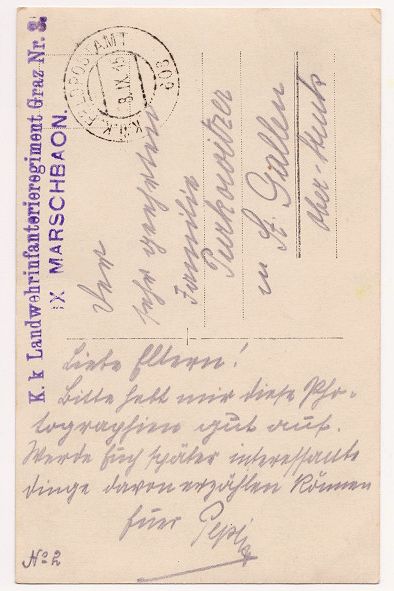 K. k Landwehrinfanterieregiment Graz Nr. 3.
IX MARSCHBAON.
K.u.K. FELDPOSTAMT
8.IX.15
605
Der
sehr geehrten
Familie
Purkowitzer
in St. Gallen
Ober-
Liebe Eltern!
Bitte hebt mir diese Pho-
tographien gut auf.
Werde Euch später interessante
dinge davon erzählen können
Euer Pepi
No 2